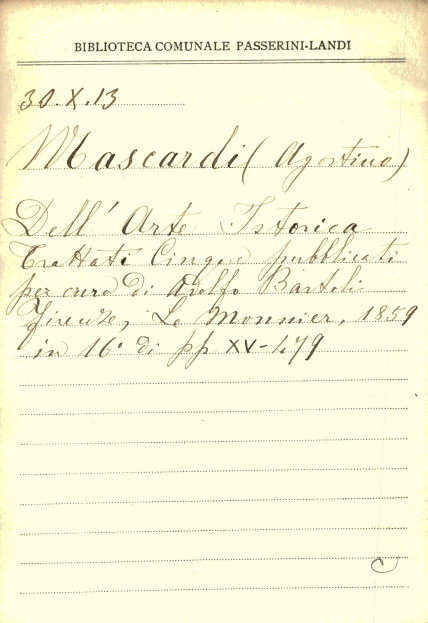 BIBLIOTECA COMUNALE PASSERINI-LANDI
30.X.13
Mascardi (Agostino)
Dell' Arte Istorica
Trattati Cinque pubblicati
per cura di Adolfo Bartoli
Firenze, Le Monnier, 1859
in 16° di pp XV-479